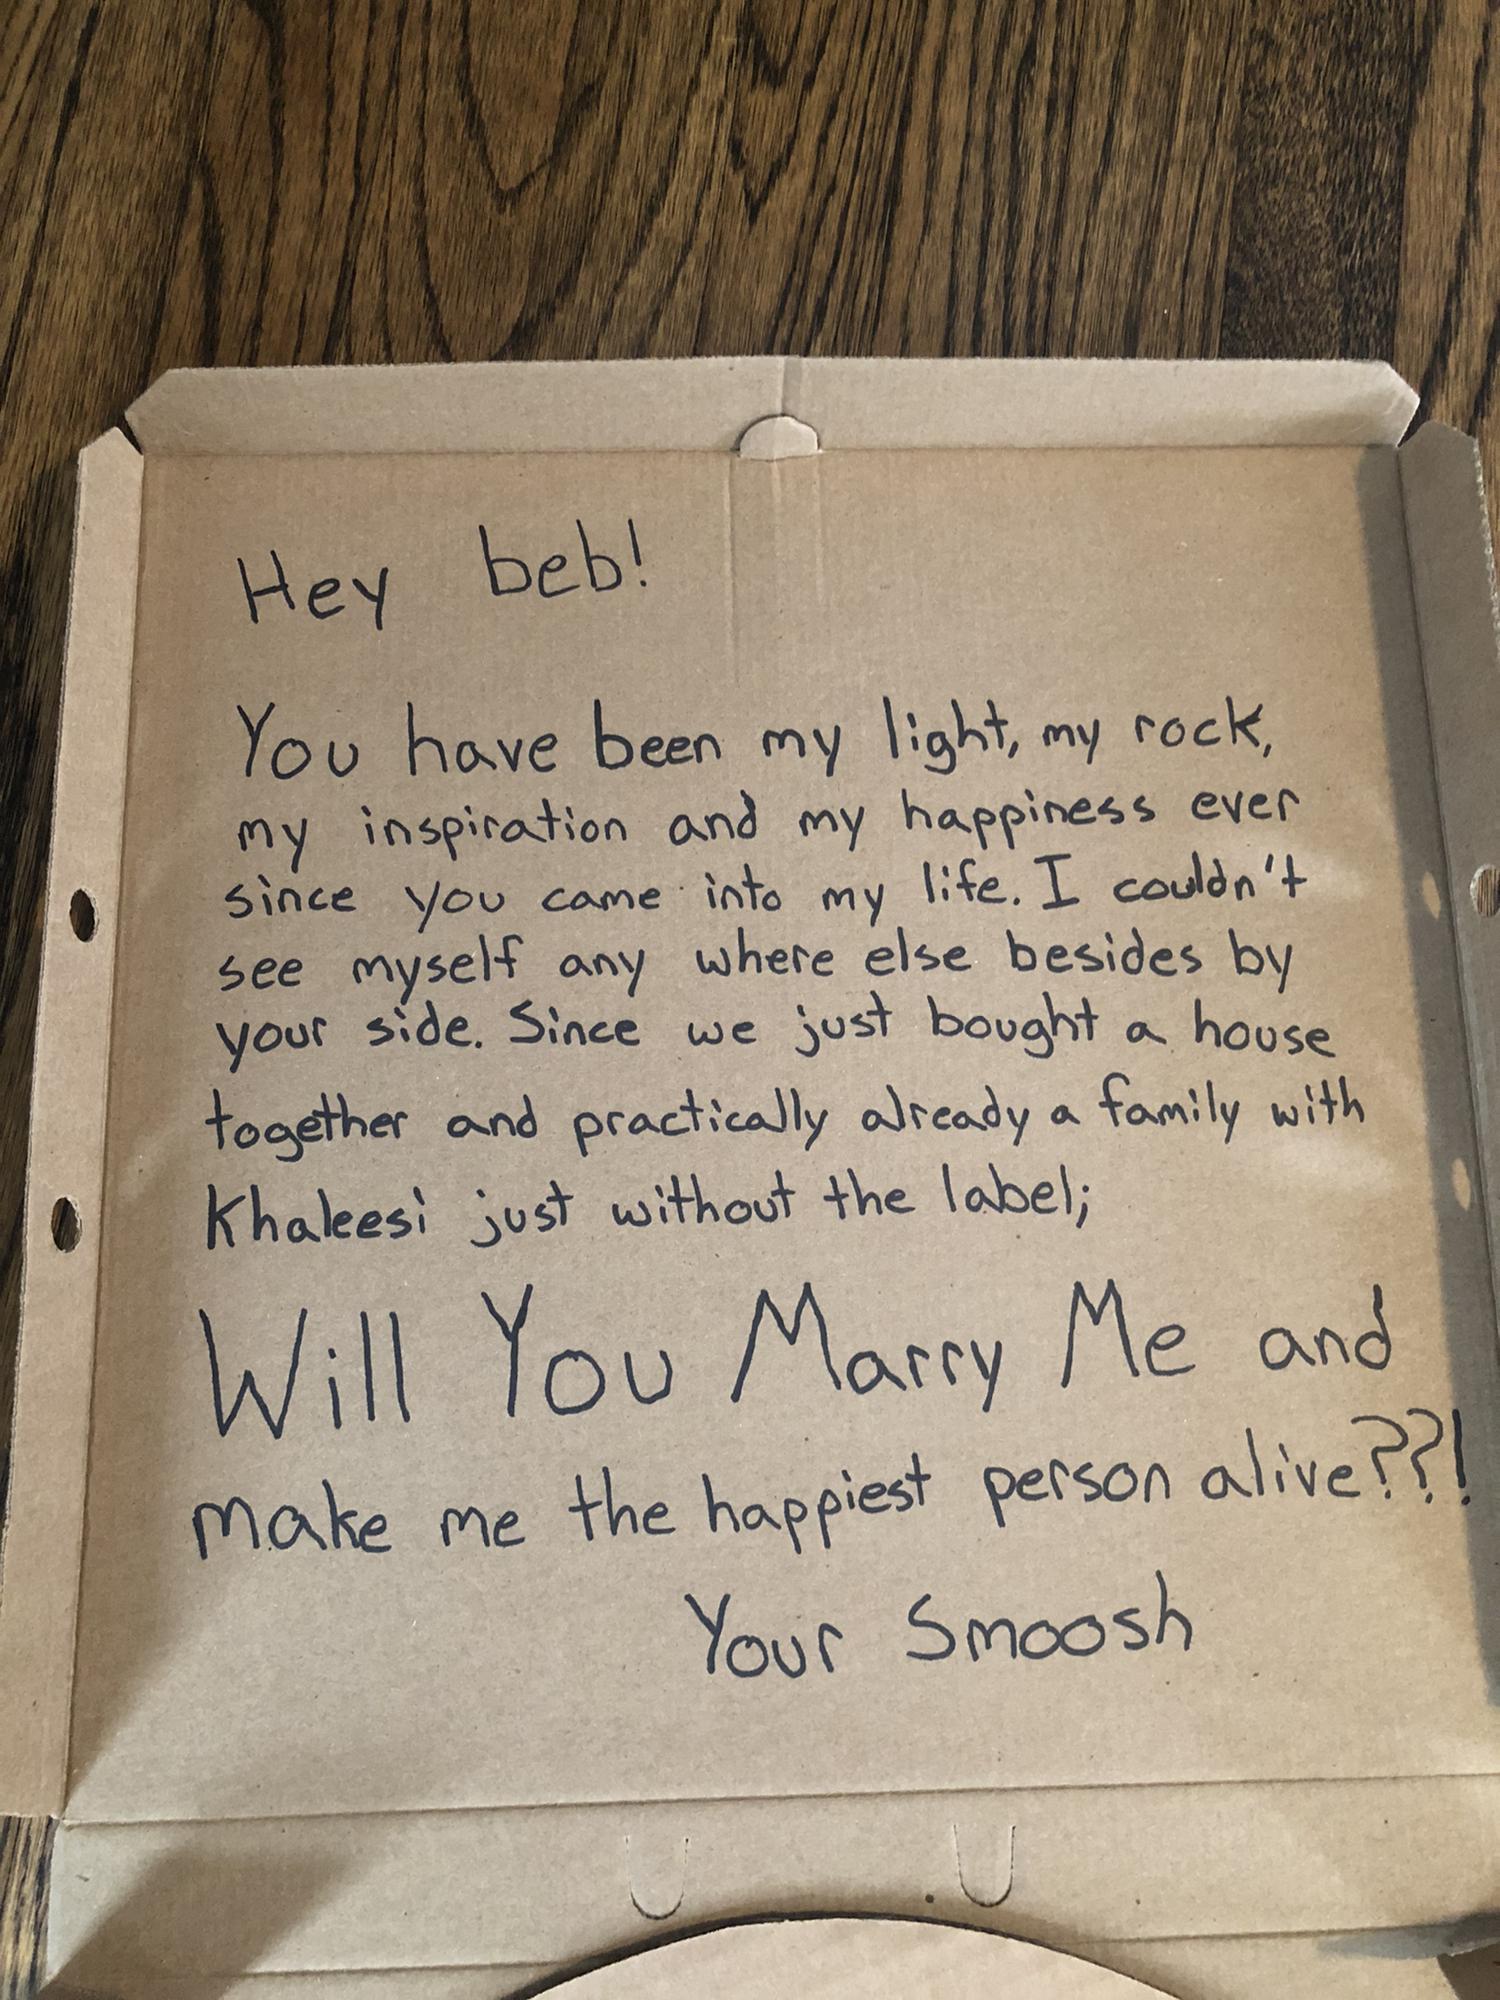 Hey beb!
You have been my light, my rock,
my inspiration and my happiness ever
since you came into my life. I couldn't
see myself any where else besides by
your side. Since we just bought a house
together and practically already a family with
Khaleesi just without the label;
Will You Marry Me and
make me the happiest person alive??!
Your Smoosh